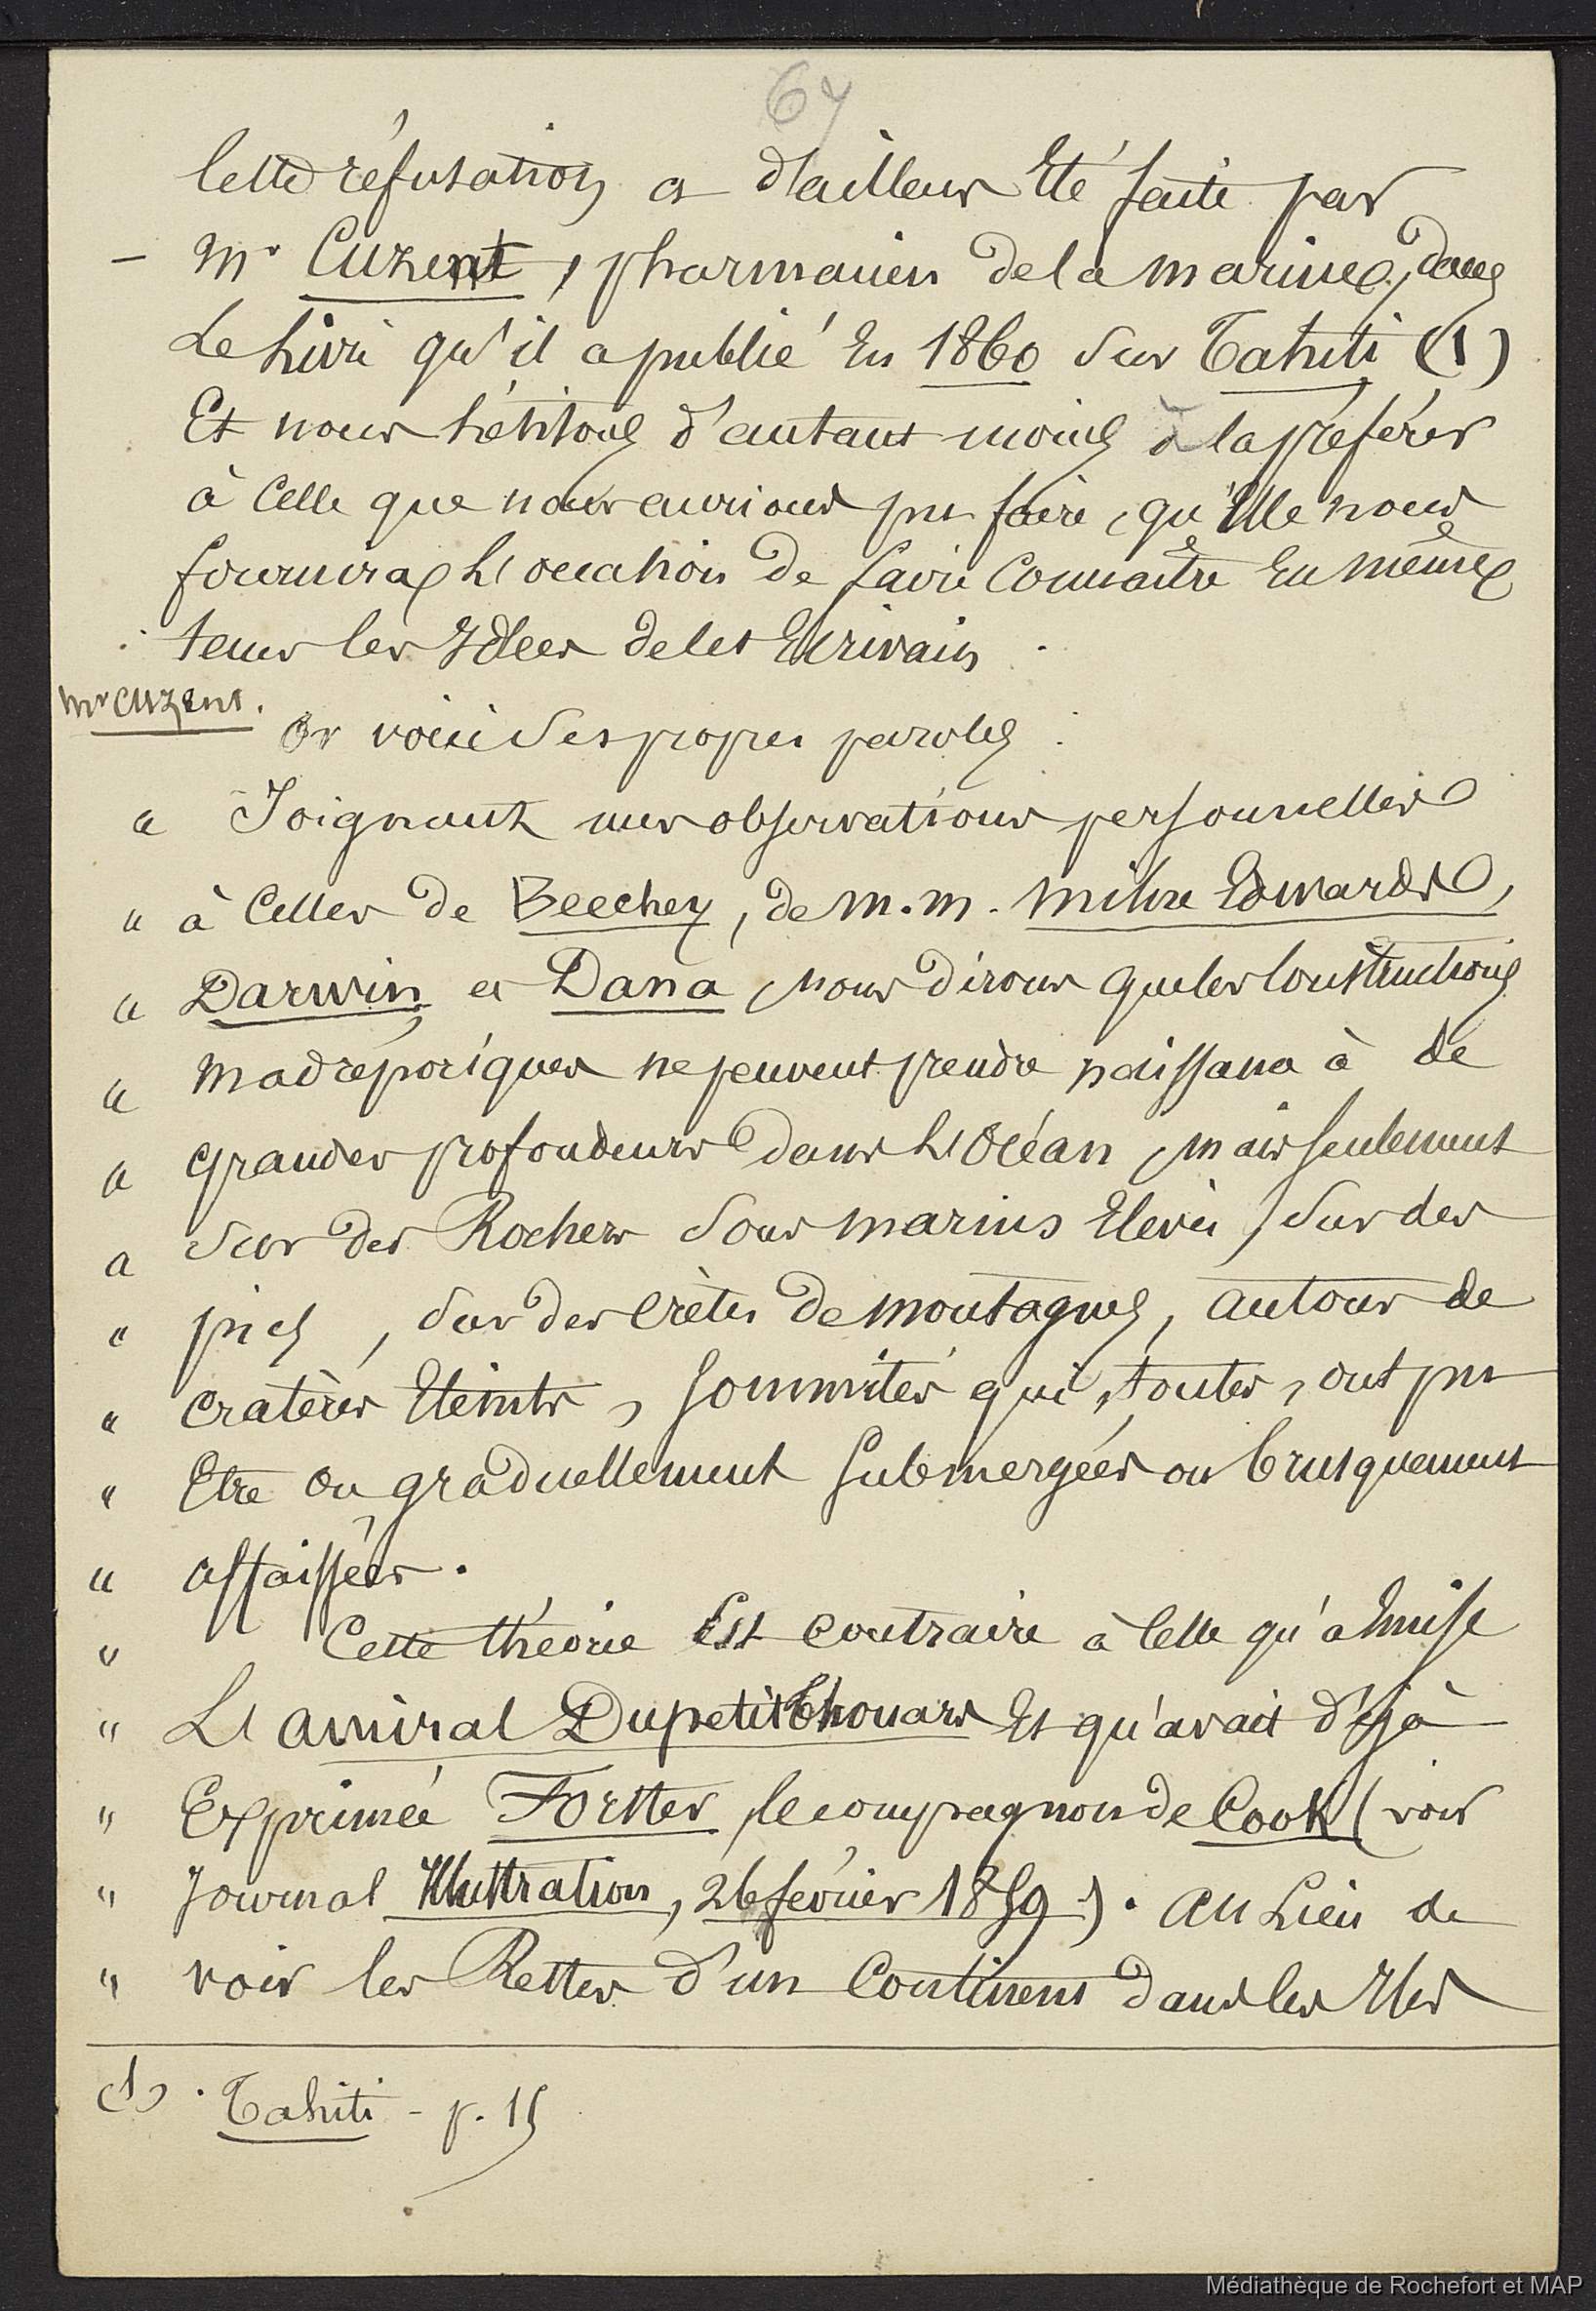 67
Cette réfutation a d'ailleurs Eté faite par
– Mr Cuzent, pharmacien de la marine, dans
Le Livre qu'il a publié En 1860 sur Tahiti (1)
Et nous hésitons d'autant moins à la préférer
à Celle que nous aurions pu faire, qu'Elle nous
fournira L'occasion de faire Connaître En même
tems les Idées de cet Ecrivain.
Mr Cuzent.
Or voici ses propres paroles :
" Joignant mes observations personnelles
" à Celles de Beechey, de M.M. Milne Edwards,
" Darwin et Dana, nous dirons que les Constructions
" madréporiques ne peuvent prendre naissance à de
" grandes profondeurs dans L'Océan, mais seulement
" sur des Rochers sous marins Elevés, sur des
" pics, sur des crètes de montagnes, autour de
" cratères Eteints, sommités qui, toutes, ont pu
" Etre ou graduellement submergées ou brusquement
" affaissées.
" Cette théorie Est contraire à Celle qu'a Emise
" L'amiral Dupetit Thouars Et qu'avait déjà
" Exprimée Forster, le compagnon de Cook (voir
" Journal Illustration, 26 février 1859). Au Lieu de
" voir les Restes d'un Continent dans les Iles
(1). Tahiti - p. 15
Médiathèque de Rochefort et MAP